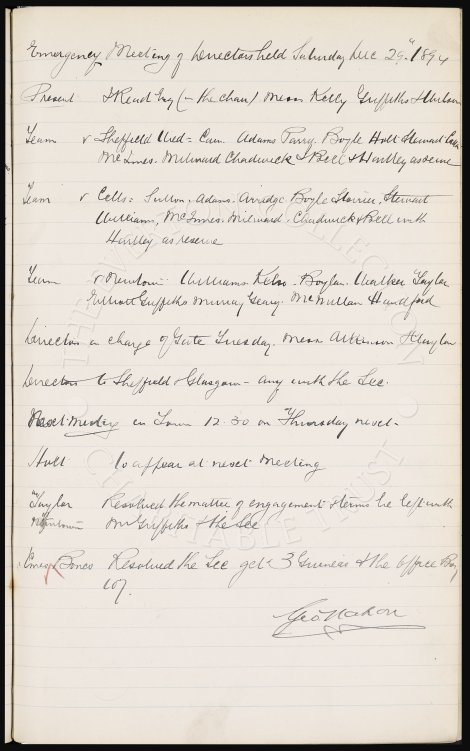 Emergency Meeting of Directors held Saturday Dec 29th 1894
Present J Read Esq (in the chair) Messrs Kelly Griffiths &
Team v Sheffield Utd = Cain Adams Parry. Boyle Holt Stewart
McInnes. Milward Chadwick & Bell & Hartley as reserve
Team v Celts = Sutton. Adams. Arridge Boyle Storrier. Stewart
Williams, McInnes. Milward. Chadwick & Bell with
Hartley as reserve
Team v Newtown Williams Kelso. Boylan. Walker Taylor
Elliott Griffiths Murray Geary. McMillan Handford
Directors in charge of Gate Tuesday. Messrs Atkinson & Clayton
Directors to Sheffield & Glasgow - any with the Sec.
Next Meeting in Town 12.30 on Thursday next -
Holt to appear at next meeting
Taylor Resolved the matter of engagement & terms be left with
Mr Griffiths & the Sec
Xmas Boxes Resolved the Sec gets 3 Guineas & the Office Boy
10/.
Geo Mahon
THE EVERTON COLLECTION CHARITABLE TRUST